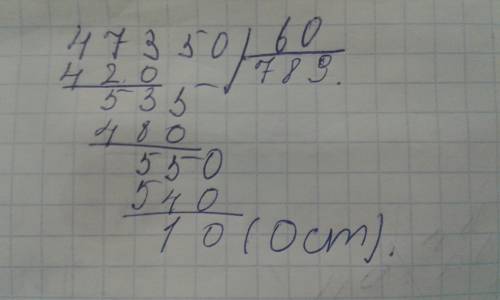 47350 60
420 789.
535
480
550
540
10 (Ост).